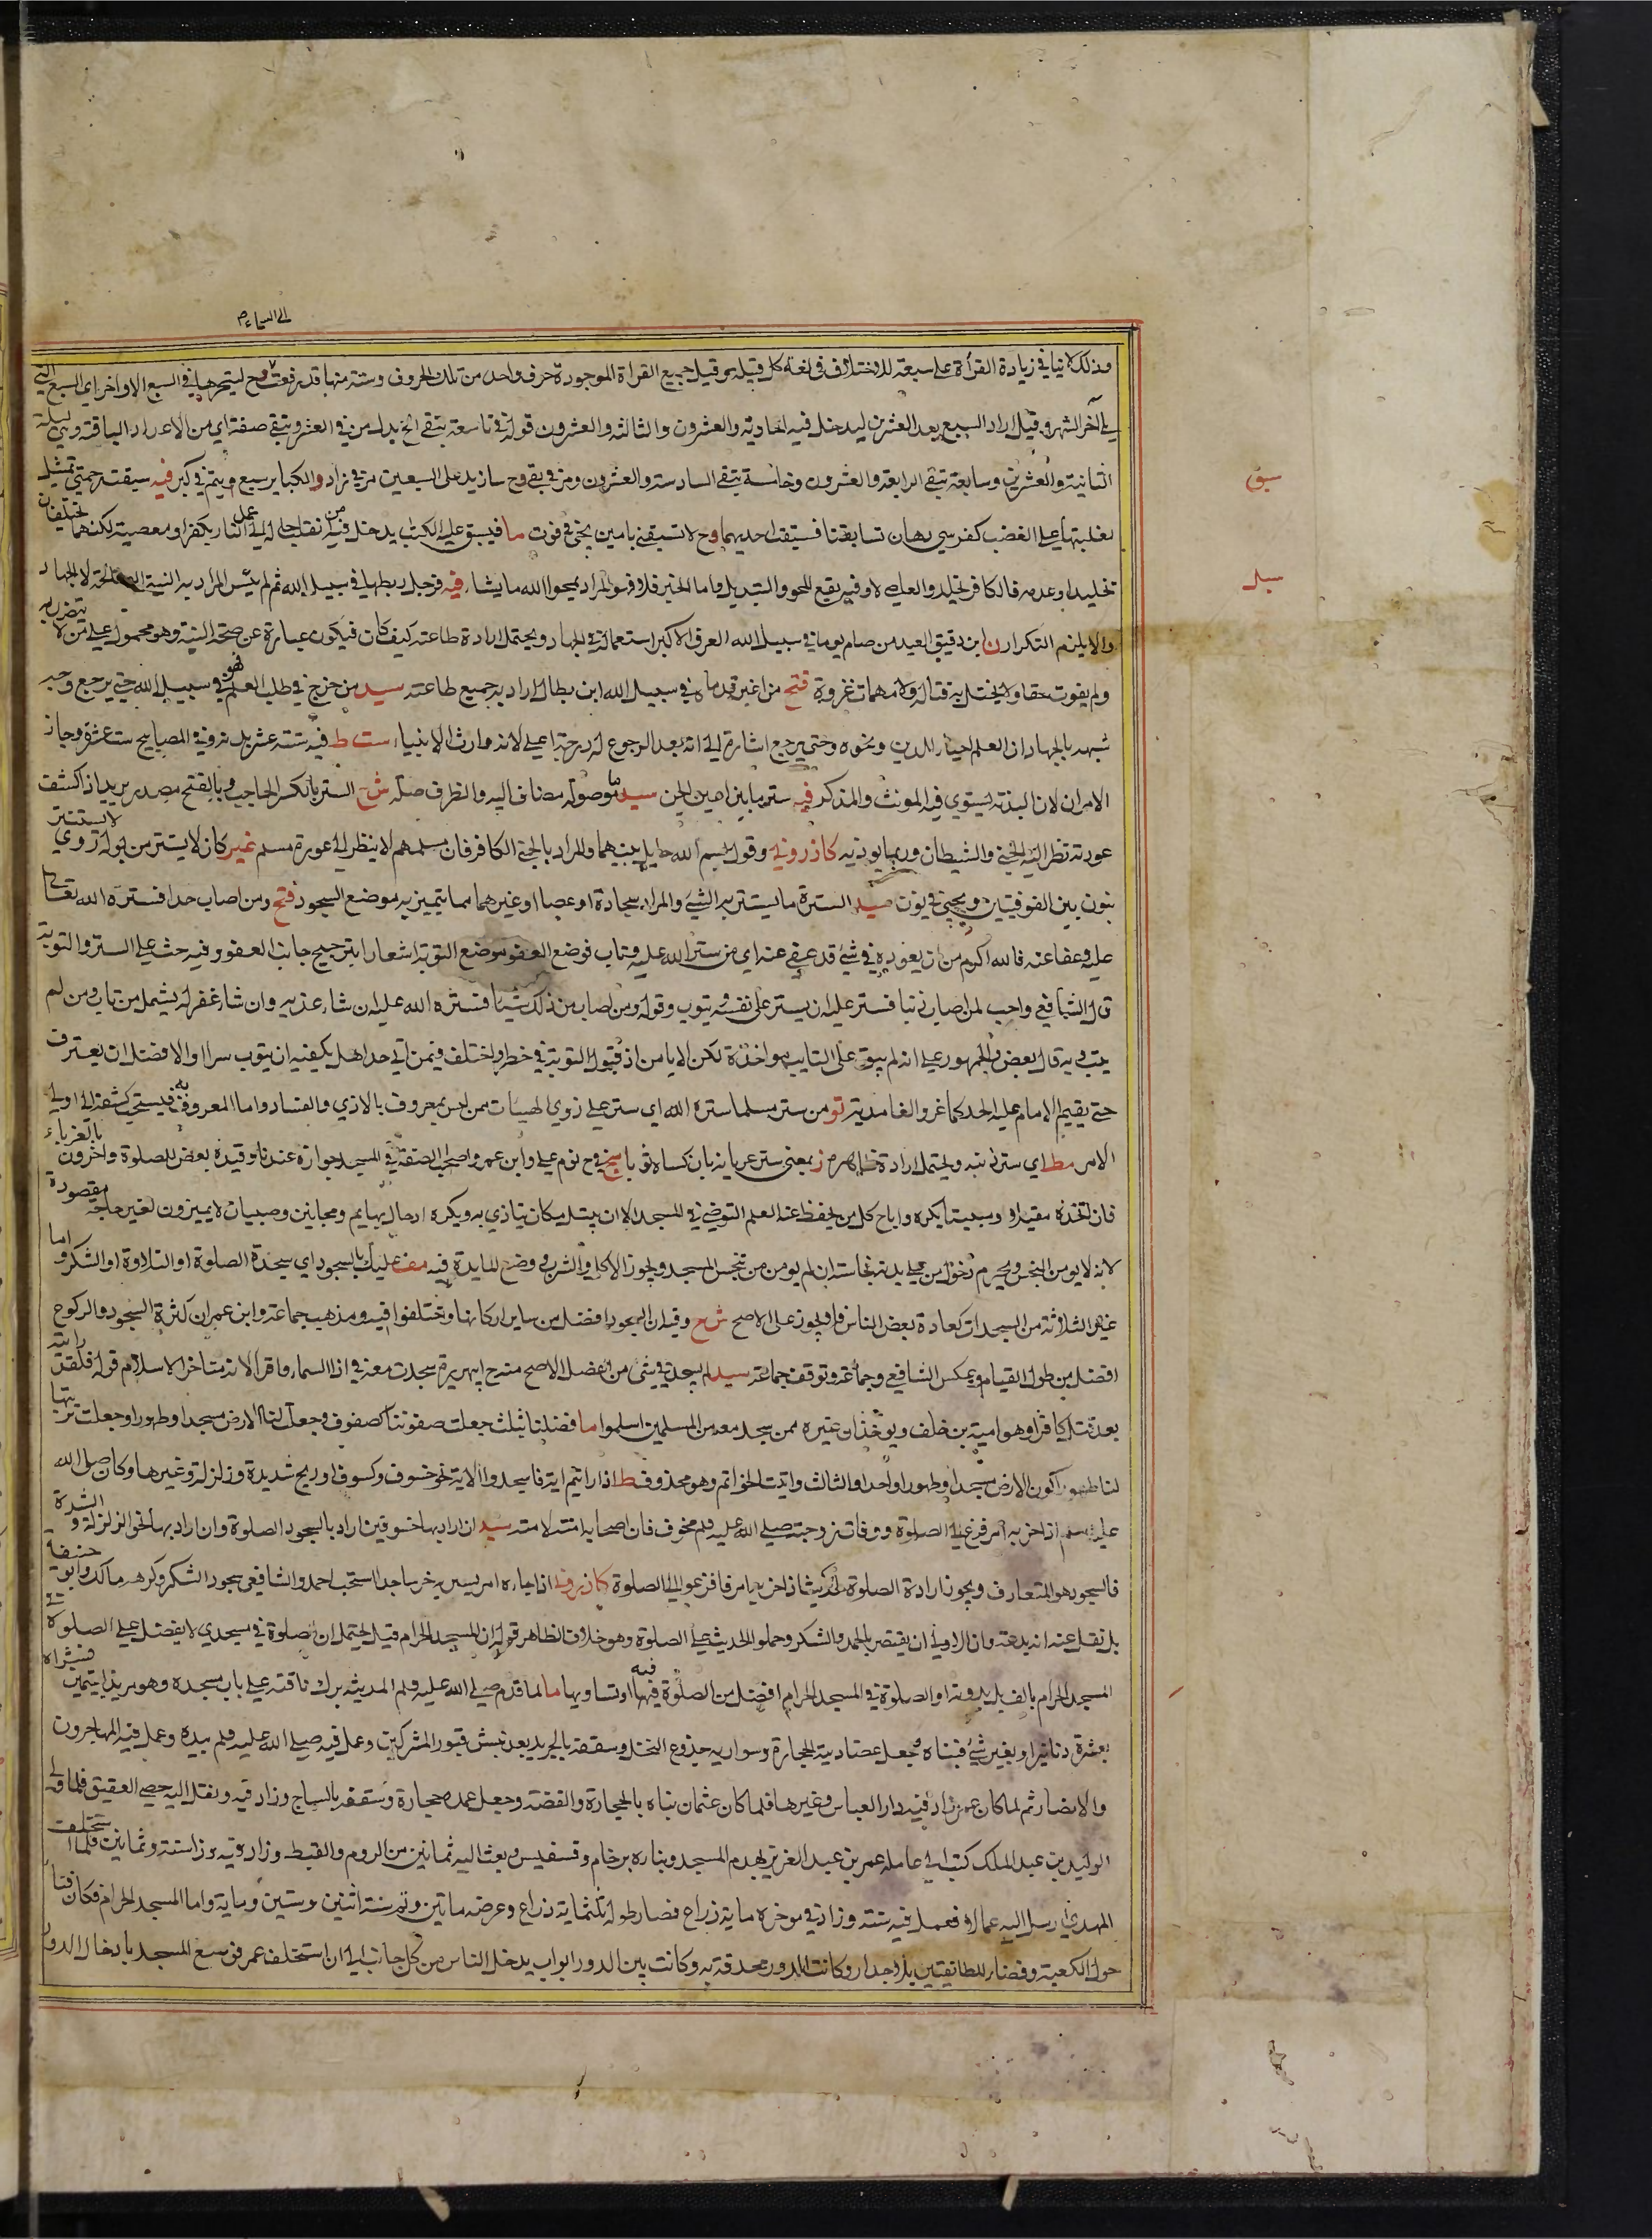 الى السماء م
وذلك لا ينافي زيادة القرأة على سبعة للاختلاف في لغة كل قبيلة وقيل جميع القراة الموجودة حرف واحد من تلك الحروف وستة منها قد رفعت وح ليتحرها في السبع الاواخر اي السبع التي
يلي آخر الشهر وقيل اراد السبع بعد العشرين ليدخل فيه الحادية والعشرون والثالثة والعشرون قوله في تاسعة تبقى الخ بدل من في العشر وتبقى صفة اي من الاعداد الباقية وهي ليلة
الثانية والعشرين وسابعة تبقى الرابعة والعشرون وخامسة تبقى السادسة والعشرون ومر في بقي وح سازيد على السبعين مر في زاد والكبائر سبع ويتم في كبر فيه سبقت رحمتي تمثيل
سبق
لغلبتها على الغضب كفرسي رهان تسابقتا فسبقت احديهما وح لا تسبقني بامين يجئ في فوت ما فيسبق عليه الكتاب يدخل فيه من انقلب حاله الى عمل النار بكفر او معصية لكنهما تختلفان
تخليدا وعدمه فالكافر تخليد والعاصي لا وفيه يقع المحو والتبديل واما الخبر فلا وهو المراد يمحوا الله ما يشاء فيه فرجل ربطها في سبيل الله ثم لم ينس المراد به النية الصالحة لا الجهاد
سبل
والا يلزم التكرار ن ابن دقيق العيد من صام يوما في سبيل الله العرف الاكبر استعماله في الجهاد ويحتمل ارادة طاعته كيف كان فيكون عبارة عن صحة النية وهو محمول على من لا يتضرر به
ولم يفوت حقا ولا يختل به قتاله ولا مهمات غزوه فتح من اغبر قدماه في سبيل الله ابن بطال اراد به جميع طاعته سيد من خرج في طلب العلم فهو في سبيل الله حتى يرجع وجه
شبهه بالجهاد ان العلم احياء الدين ونحوه وحتى يرجع اشارة الى انه بعد الرجوع له درجة اعلى لانه وارث الانبياء ست ط فيه ستة عشر بدنة وفي المصابيح ست عشرة وجاز
الامران لان البدنة يستوي فيه المونث والمذكر فيه ستر ما بين اعين الجن سيد ما موصولة مضاف اليه والظرف صلة ش ح الستر بالكسر الحاجب وبالفتح مصدر يريد اذا كشف
عورته نظر اليه الجني والشيطان وربما يوذيه كازروني وقول بسم الله حايل بينهما والمراد بالجن الكافر فان مسلمهم لا ينظر الى عورة مسلم غير كان لا يستتر من بوله روي لا يستنتر
بنون بين الفوقيتين ويجئ في نون سيد السترة ما يستتر به الشئ والمراد سجادة او عصا او غيرهما مما يتميز به موضع السجود فتح ومن اصاب حدا فستره الله تعالى
عليه وعفا عنه فالله اكرم من ان يعود في شئ قد عفي عنه اي من ستر الله عليه وتاب فوضع العفو موضع التوبة اشعارا بترجيح جانب العفو وفيه حث على الستر والتوبة
قال الشافعي واحب لمن اصاب ذنبا فستر عليه ان يستر على نفسه ويتوب وقوله ومن اصاب من ذلك شيئا فستره الله عليه ان شاء عذبه وان شاء غفر له يشمل من تاب ومن لم
يتب وبه قال البعض والجمهور على انه لم يبق على التايب مواخذة لكن لا يامن اذ قبول التوبة في خطر واختلف فيمن اتى حدا هل يكفيه ان يتوب سرا او الافضل ان يعترف
حتى يقيم الامام عليه الحد كماعز والغامدية تو من ستر مسلما ستره الله اي ستر على ذوي الهيئات ممن ليس بمعروف بالاذي والفساد واما المعروف به فيستحب كشفه الى اولي
الامر مط اي ستر ذنبه ويحتمل ارادة ظاهره ز بمعنى ستر عريانه بان كساه ثوبا سج وح نوم علي وابن عمر واصحاب الصفة في المسجد جوازه عندنا وقيده بعض للصلوة واخرون بالغرباء
فان اتخذه مقيلا ومبيتا يكره واباح كل من يحفظ عنه العلم التوضئ في المسجد الا ان يبتل مكان يتاذي به ويكره ادخال بهايم ومجانين وصبيان لا يميزون لغير حاجة مقصودة
لانه لا يومن التنجس ويحرم دخول من على بدنه نجاسة ان لم يومن من تنجس المسجد ويجوز الاكل والشرب ووضع المايدة فيه مف عليك بالسجود اي سجدة الصلوة او التلاوة او الشكر واما
غير الثلاثة من السجدات كعادة بعض الناس فلا يجوز على الاصح ش ح وقيل ان السجود افضل من ساير اركانها واختلفوا فيه ومذهب جماعة وابن عمر ان كثرة السجود والركوع
افضل من طول القيام وعكس الشافعي وجماعة وتوقف جماعة سيد لم يسجد في شئ من المفصل الاصح منه ح ابي هريرة سجدت معه في اذا السماء واقرأ لانه متاخر الاسلام قوله فلقد رايته
بعد قتل كافرا وهو امية بن خلف ويوخذ ان غيره ممن سجد معه من المسلمين اسلموا ما فضلنا بثلث جعلت صفوفنا كصفوف وجعل لنا الارض مسجدا وطهورا وجعلت تربتها
لنا طهورا كون الارض مسجدا وطهورا واحد والثالث واتيت الخواتم وهو محذوف ط اذا رايتم اية فاسجدوا الاية نحو خسوف وكسوف وريح شديدة وزلزلة وغيرها وكان صلى الله
عليه وسلم اذا حزبه امر فزع الى الصلوة ووفات زوجته صلى الله عليه وسلم مخوف فان اصحابه امنة لامته سيد ان اراد بها خسوفين اراد بالسجود الصلوة وان اراد بها نحو الزلزلة والشدة
فالسجود هو المتعارف ويجوز ارادة الصلوة لحديث اذا حزبه امر فافزعوا الى الصلوة كازروني اذا جاءه امر يسر به خر ساجدا استحب احمد والشافعي سجود الشكر وكره مالك وابو حنيفة
بل نقل عنه انه بدعة وان الاولى ان يقتصر بالحمد والشكر وحملوا الحديث على الصلوة وهو خلاف الظاهر قوله الا المسجد الحرام قيل يحتمل ان صلوة في مسجدي لا يفضل على الصلوة في
المسجد الحرام بالف بل بدونه او الصلوة في المسجد الحرام افضل من الصلوة فيه او تساويها ما لما قدم صلى الله عليه وسلم المدينة برك ناقته على باب مسجده وهو مربد ليتيمين فشراه
بعشرة دنانير او بغير شئ فبناه وجعل عضادتيه الحجارة وسواريه جذوع النخل وسقفه بالجريد بعد نبش قبور المشركين وعمل فيه صلى الله عليه وسلم بيده وعمل فيه المهاجرون
والانصار ثم لما كان عمر زاد فيه دار العباس وغيرها فلما كان عثمان بناه بالحجارة والقصة وجعل عمده حجارة وسقفه بالساج وزاد فيه ونقل اليه حصى العقيق فلما ولي
الوليد بن عبد الملك كتب الى عامله عمر بن عبد العزيز بهدم المسجد وبناره برخام وفسفيس وبعث اليه ثمانين من الروم والقبط وزاد فيه سنة وثمانين فلما استخلف
المهدي ارسل اليه عمالا فعمل فيه سنة وزاد في موخره مائة ذراع فصار طوله ثلثمائة ذراع وعرضه مائتين وتم سنة اثنين وستين ومائة واما المسجد الحرام فكان فناء
حول الكعبة وفضاء للطائفين بلا جدار وكانت الدور محدقة به وكانت بين الدور ابواب يدخل الناس من كل جانب الى ان استخلف عمر فوسع المسجد بادخال الدور